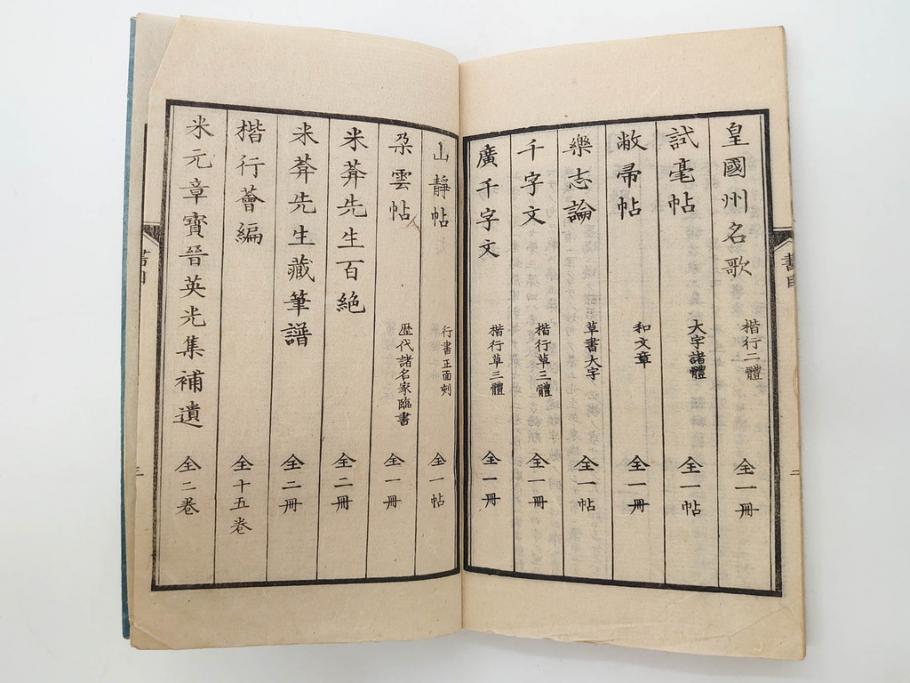 皇國州名歌 楷行二體 全一冊
試毫帖 大字諸體 全一帖
敝帚帖 和文章 全一冊
樂志論 草書大字 全一帖
千字文 楷行草三體 全一冊
廣千字文 楷行草三體 全一冊
山靜帖 行書正面刻 全一帖
朶雲帖 歷代諸名家臨書 全一冊
米菴先生百絶 全二冊
米菴先生藏筆譜 全二冊
楷行薈編 全十五卷
米元章寶晉英光集補遺 全二卷
書目
三